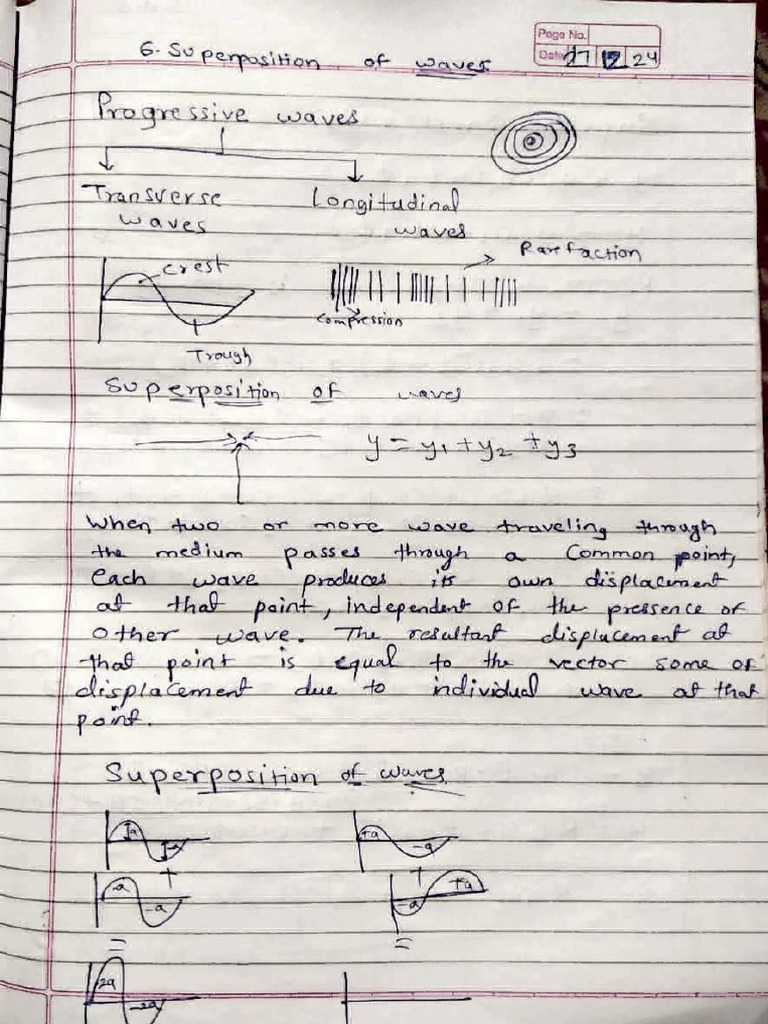 Page No.
Date 27 12 24
6. Superposition of waves
Progressive waves
Transverse waves
Longitudinal waves
crest
Rarefaction
compression
Trough
Superposition of waves
y = y₁ + y₂ + y₃
When two or more wave traveling through
the medium passes through a common point,
each wave produces its own displacement
at that point, independent of the pressence of
other wave. The resultant displacement at
that point is equal to the vector some of
displacement due to individual wave at that
point.
Superposition of waves
a -a
+a -a
+ +
a -a
-a +a
= =
2a -2a